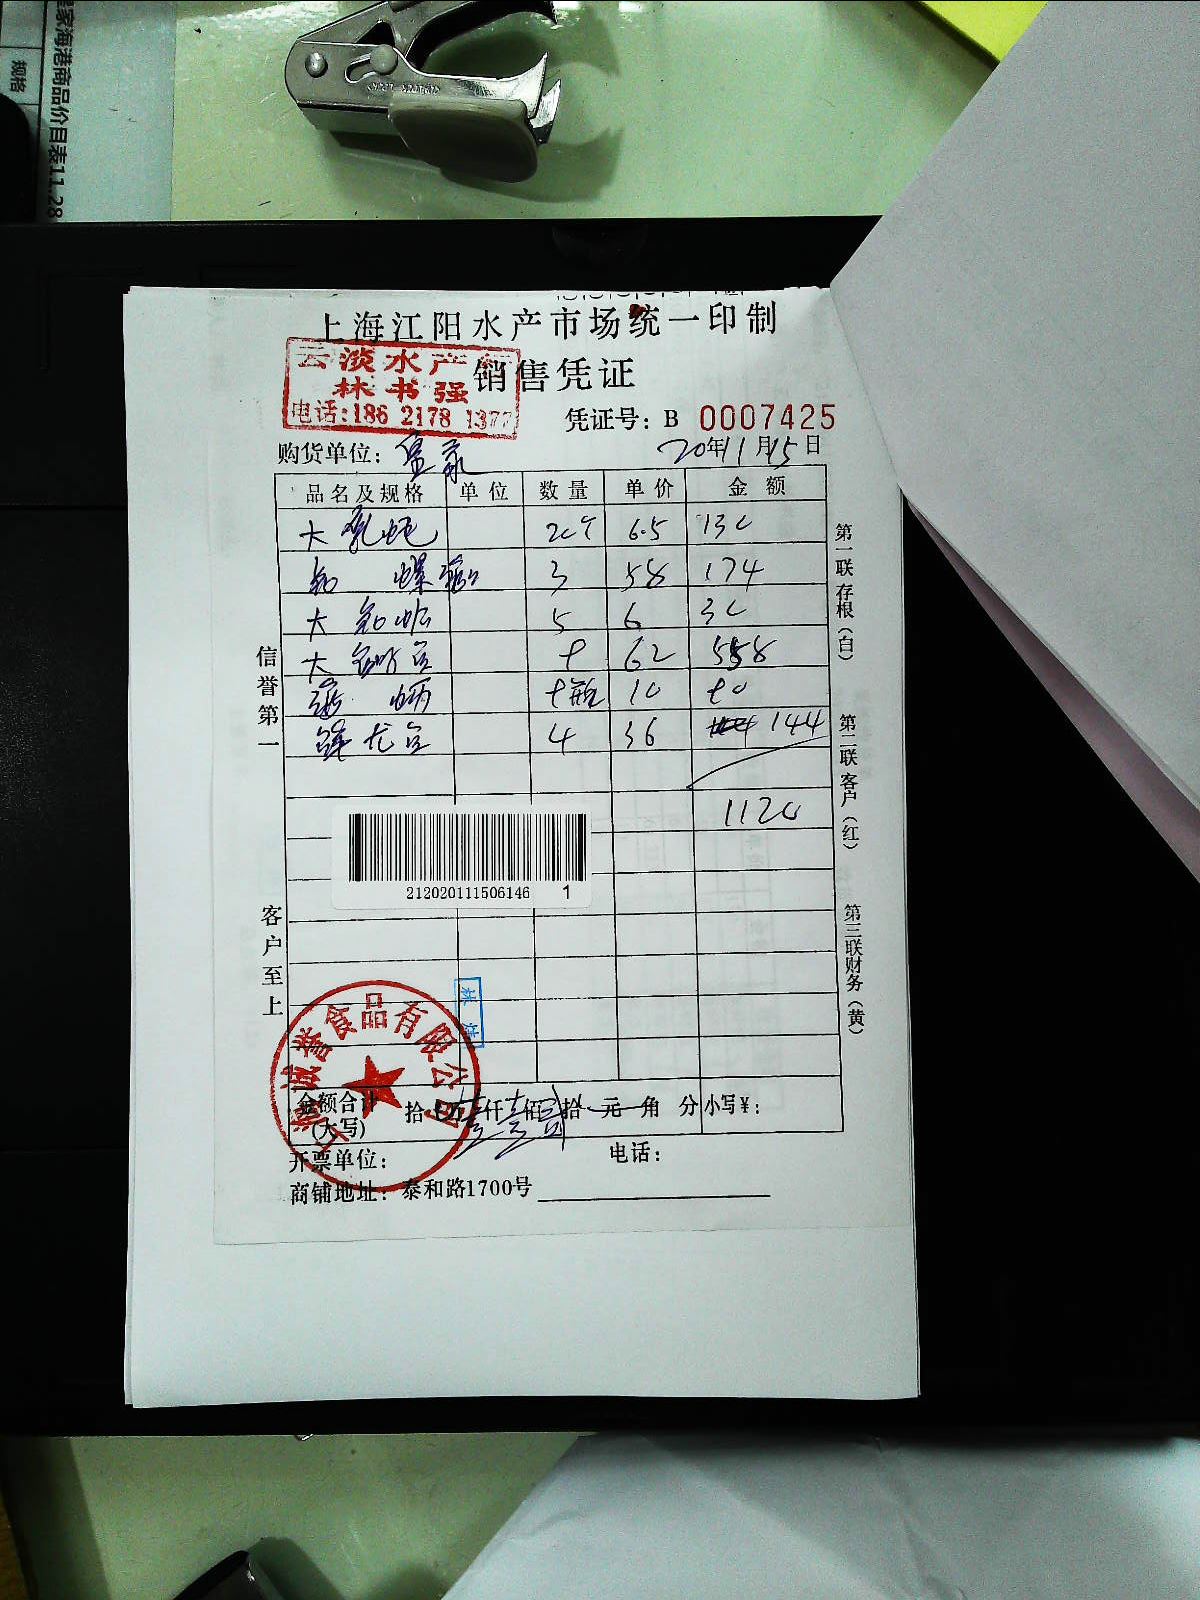 家海港商品价目表11.28
规格
上海江阳水产市场统一印制
销售凭证
云淡水产行
林书强
电话:186 2178 1377
凭证号: B 0007425
购货单位:
20年11月15日
品名及规格 单位 数量 单价 金额
大 20个 6.5 130
螺 3 58 174
大 5 6 30
大 62 558
瓶 10
鲜 4 36 144
1120
212020111506146 1
信誉第一
客户至上
第一联存根(白)
第二联客户(红)
第三联财务(黄)
上海诚誉食品有限公司
金额合计
(大写)
拾 万壹仟壹佰贰拾 元 角 分 小写¥:
开票单位: 电话:
商铺地址: 泰和路1700号